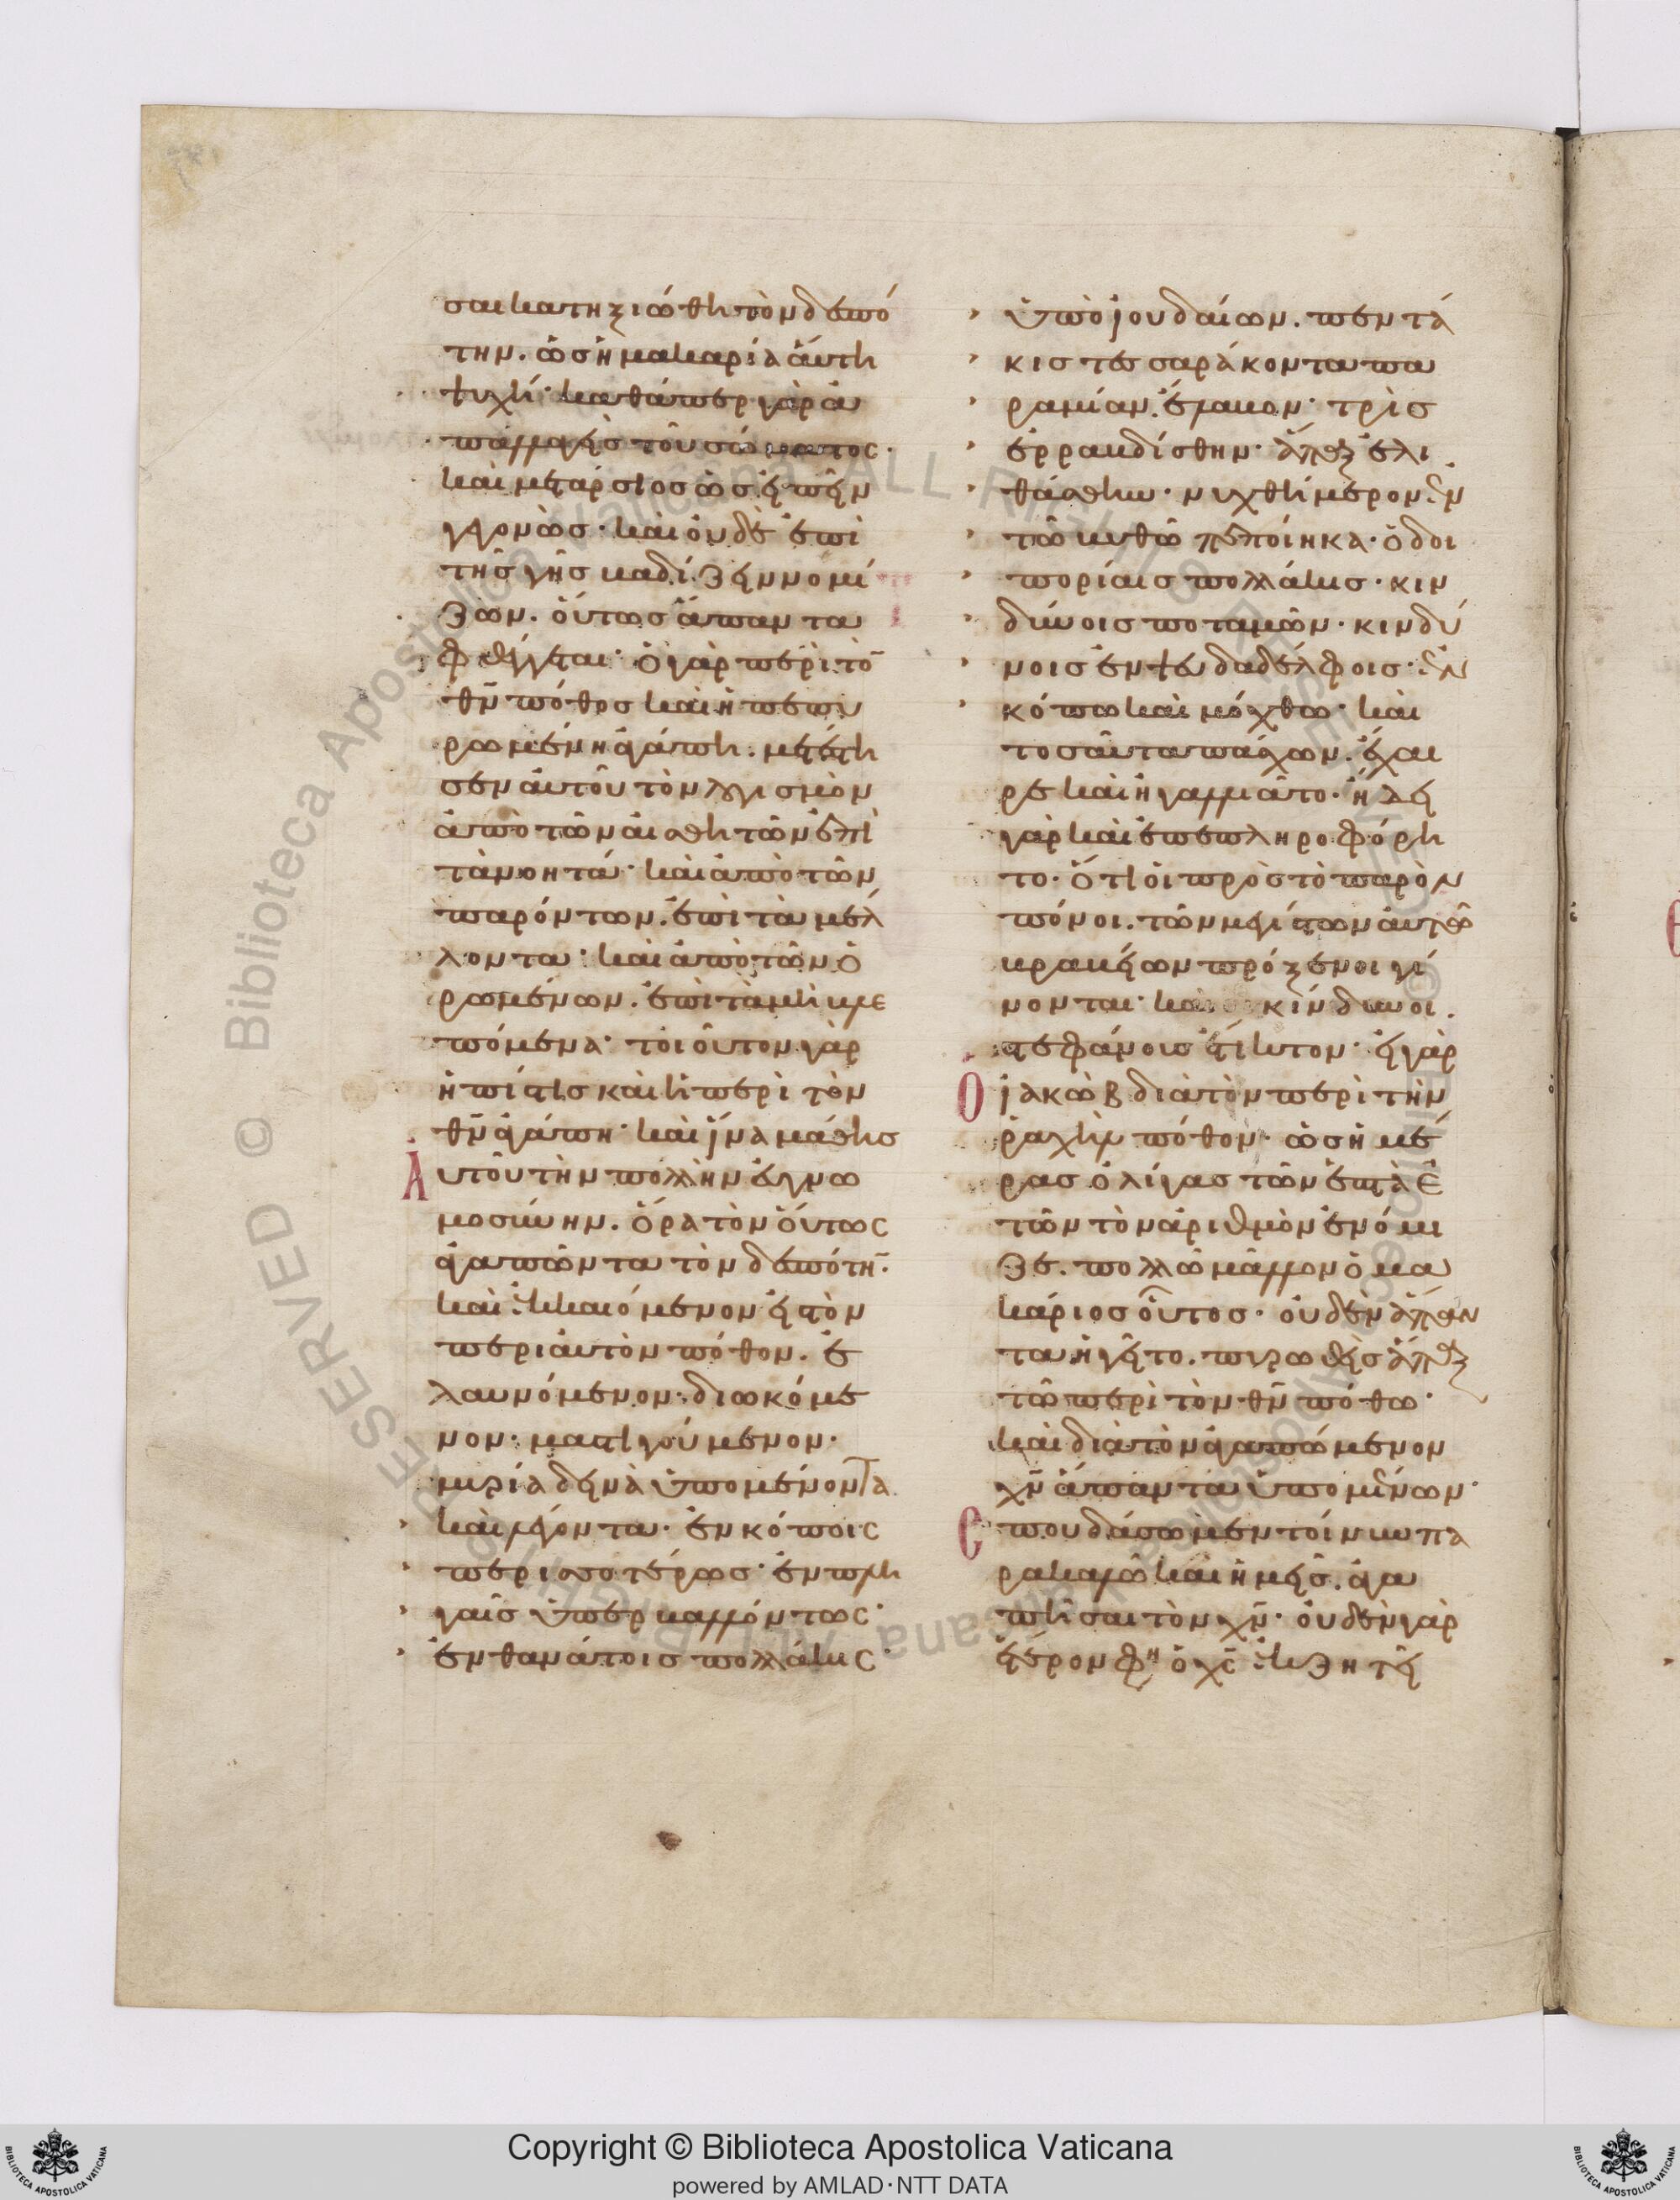 σαι κατηξιώθη τὸν δεσπό
την. ὡς ἡ μακαρία ἄυτη
ψυχή· καθάπερ γὰρ ἀ
παλλαγεὶς τοῦ σώματος·
καὶ μετάρσιος ὡσεὶ πτην
γεγονὼς· καὶ οὐδὲ ἐπὶ
τῆς γῆς βαδίζειν νομί
ζων. ὅυτως ἅπαντα
φθέγγεται· ὁ γὰρ περὶ τὸ̄
θν̄ πόθος καὶ ἡ πεπυ
ρωμένη ἀγάπη. μετέστη
σεν αὐτοῦ τὸν λογισμὸν
ἀπὸ τῶν αἰσθητῶν ἐπὶ
τὰ νοητά· καὶ ἀπὸ τῶν
παρόντων. ἐπὶ τὰ μέλ
λοντα· καὶ ἀπὸ τῶν ὁ
ρωμένων. ἐπὶ τὰ μὴ βλε
πόμενα· τοιοῦτον γὰρ
ἡ πίστις καὶ ἡ περὶ τὸν
θν̄ ἀγάπη· καὶ ἵνα μάθης
Αυτοῦ τὴν πολλὴν ἐυγνω
μοσύνην. ὅρα τὸν ὅυτως
ἀγαπῶντα τὸν δεσπότη̄·
καὶ ἐκκαιόμενον εἰς τὸν
περὶ αὐτὸν πόθον. ἐ
λαυνόμενον· διωκόμε
νον· μαστιγούμενον·
μυρία δεινὰ ὑπομένοντα
καὶ λέγοντα· ἐν κόποις
περισσοτέρως· ἐν πλη
γαῖς ὑπερβαλλόντως·
ἐν θανάτοις πολλάκις·
ὑπὸ ἰουδαίων. πεντά
κις τεσσαράκοντα πα
ραμίαν. ἔλαβον· τρὶς
ἐρραβδίσθην· ἅπαξ ἐλι
θάσθην· νυχθήμερον ἐν
τῶ βυθῶ πεποίηκα· ὁδοι
πορίαις πολλάκις· κιν
δύνοις ποταμῶν· κινδύ
νοις ἐν ψευδαδέλφοις· ἐν
κόπω καὶ μόχθω· καὶ
τοσαῦτα πάσχων. ἔχαι
ρε καὶ ἠγάλλιᾶτο· ἤδει
γὰρ καὶ ἐπεπληροφόρη
το. ὅτι οἱ πρὸς τὸ παρὸν
πόνοι. τῶν μεγίστων αὐτῶ
βραβείων πρόξενοι γί
νονται· καὶ κίνδυνοι.
στεφάνους ἔτικτον· εἰ γὰρ
Ὁ ἰακὼβ διὰ τὸν περὶ τὴν
ῥαχὴλ πόθον· ὡς ἡμέ
ρας ὀλίγας τῶν ἑπτὰ ἐ
τῶν τὸν ἀριθμὸν ἐνόμι
ζε. πολλῶ μᾶλλον ὁ μα
κάριος οὗτος· οὐδὲν ἅπαν
τα ἡγεῖτο. πυρωθεὶς ἅπαξ
τῶ περὶ τὸν θν̄ πόθω·
καὶ διὰ τὸν ἀγαπώμενον
χν̄ ἅπαντα ὑπομένων·
Σπουδάσωμεν τοίνυν πα
ρακαλῶ καὶ ἡμεῖς. ἀγα
πῆσαι τὸν χν̄· οὐδὲν γὰρ
ἕτερον φη ὁ χς̄ ἐκζητεῖ